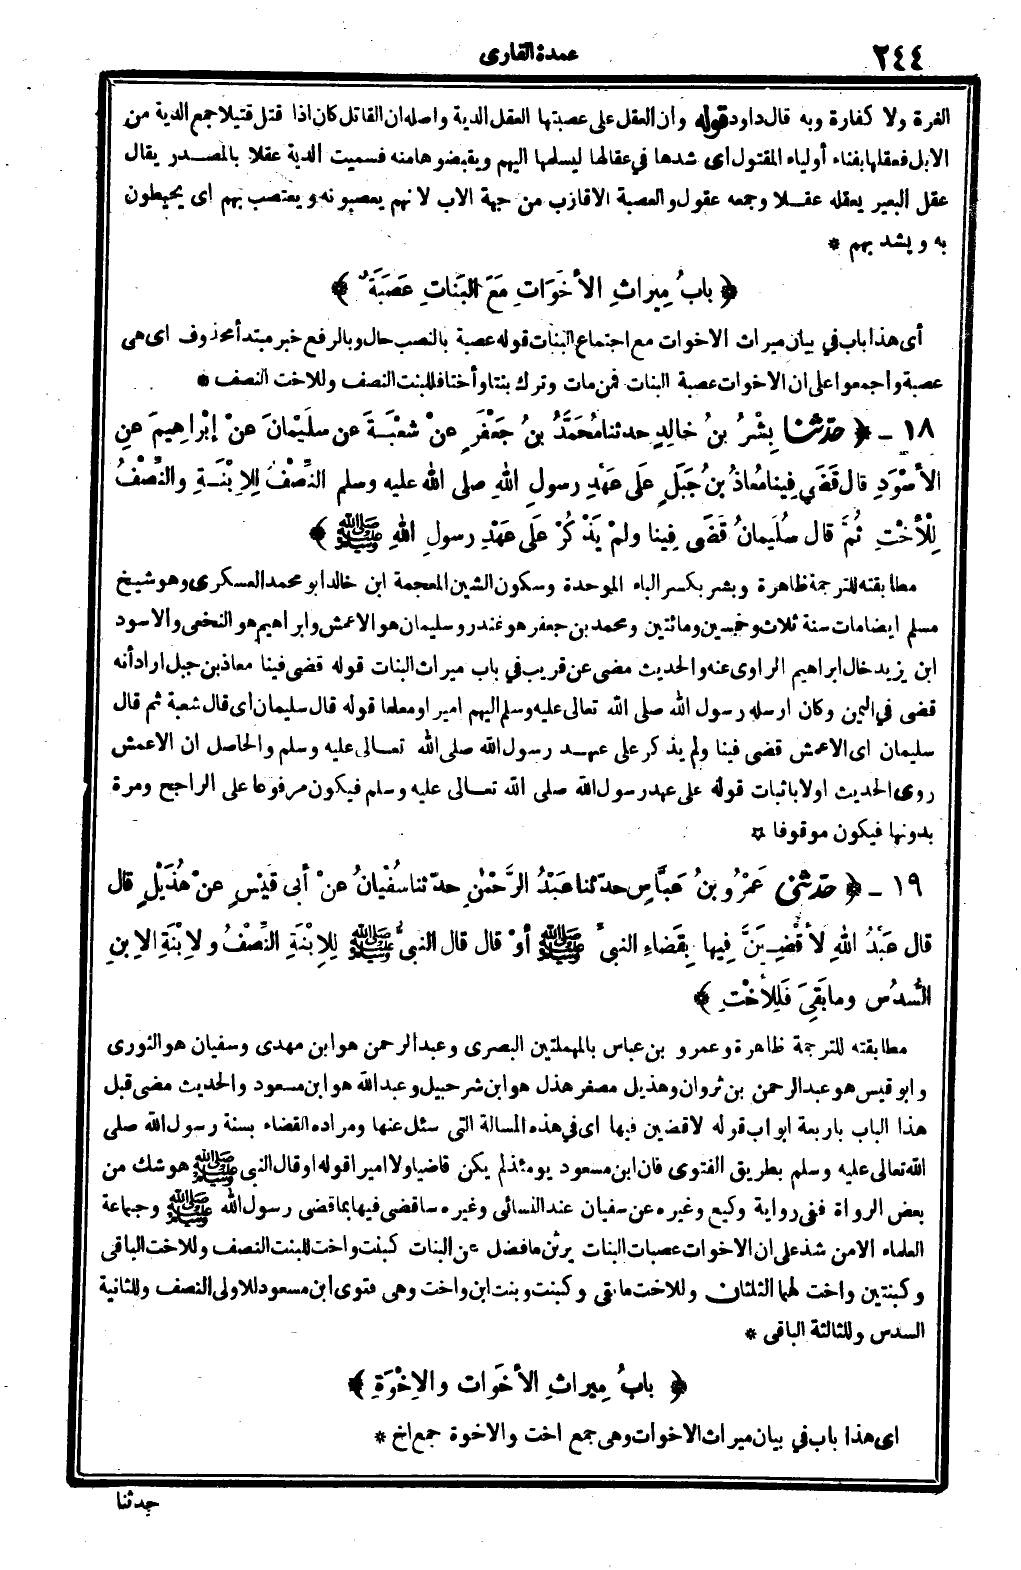 ٢٤٤
عمدة القارى
الغرة ولا كفارة وبه قال داود قوله وان العقل على عصبتها العقل الدية واصله ان القاتل كان اذا قتل قتيلا جمع الدية من
الابل فعقلها بفناء أولياء المقتول اى شدها في عقالها ليسلمها اليهم ويقبضوها منه فسميت الدية عقلا بالمصدر يقال
عقل البعير يعقله عقلا وجمعه عقول والعصبة الاقارب من جهة الاب لانهم يعصبونه ويعتصب بهم اى يحيطون
به ويشد بهم *
﴿ بابُ مِيراثِ الأخَوَاتِ مَعَ البَنَاتِ عَصَبَةً ﴾
أى هذا باب في بيان ميراث الاخوات مع اجتماع البنات قوله عصبة بالنصب حال وبالرفع خبر مبتدأ محذوف اى هى
عصبة واجمعوا على ان الاخوات عصبة البنات فمن مات وترك بنتا وأختا فللبنت النصف وللاخت النصف *
١٨ - ﴿ حدثنا بِشْرُ بنُ خالِدٍ حدثنا مُحَمَّدُ بنُ جَعْفَرٍ عنْ شعْبَةَ عن سلَيْمَانَ عنْ إبْرَاهِيمَ عنِ
الأسْوَدِ قال قَضَى فِينا مُعاذُ بنُ جَبَلٍ علَى عَهْدِ رسولِ اللهِ صلى الله عليه وسلم النِّصْفُ لِلاِبْنَةِ والنِّصْفُ
لِلْأُخْتِ ثُمَّ قال سُلَيمانُ قَضَى فِينا ولمْ يَذْكُرْ علَى عَهْدِ رسولِ اللهِ ﷺ ﴾
مطابقته للترجمة ظاهرة وبشر بكسر الباء الموحدة وسكون الشين المعجمة ابن خالد ابو محمد العسكرى وهو شيخ
مسلم ايضا مات سنة ثلاث وخمسين ومائتين ومحمد بن جعفر هو غندر وسليمان هو الاعمش وابراهيم هو النخعى والاسود
ابن يزيد خال ابراهيم الراوى عنه والحديث مضى عن قريب في باب ميراث البنات قوله قضى فينا معاذ بن جبل اراد أنه
قضى في اليمن وكان ارسله رسول الله صلى الله تعالى عليه وسلم اليهم اميرا ومعلما قوله قال سليمان اى قال شعبة ثم قال
سليمان اى الاعمش قضى فينا ولم يذكر على عهد رسول الله صلى الله تعالى عليه وسلم والحاصل ان الاعمش
روى الحديث اولا باثبات قوله على عهد رسول الله صلى الله تعالى عليه وسلم فيكون مرفوعا على الراجح ومرة
بدونها فيكون موقوفا *
١٩ - ﴿ حدثنى عَمْرُو بنُ عَبَّاسٍ حدثنا عبْدُ الرَّحْمٰنِ حدثنا سُفْيانُ عنْ أبى قَيْسٍ عنْ هُذَيْلٍ قال
قال عَبْدُ اللهِ لأَقْضِيَنَّ فِيها بِقَضَاءِ النبىِّ ﷺ أوْ قال قال النبىُّ ﷺ لِلاِبْنَةِ النِّصْفُ ولاِبْنَةِ الاِبنِ
السُّدُسُ وما بَقِىَ فَلِلأُخْتِ ﴾
مطابقته للترجمة ظاهرة وعمرو بن عباس بالمهملتين البصرى وعبد الرحمن هو ابن مهدى وسفيان هو الثورى
وابو قيس هو عبد الرحمن بن ثروان وهذيل مصغر هذل هو ابن شرحبيل وعبد الله هو ابن مسعود والحديث مضى قبل
هذا الباب باربعة ابواب قوله لاقضين فيها اى في هذه المسالة التى سئل عنها ومراده القضاء بسنة رسول الله صلى
الله تعالى عليه وسلم بطريق الفتوى فان ابن مسعود يومئذ لم يكن قاضيا ولا اميرا قوله او قال النبى ﷺ هو شك من
بعض الرواة ففى رواية وكيع وغيره عن سفيان عند النسائى وغيره ساقضى فيها بما قضى رسول الله ﷺ وجماعة
العلماء الا من شذ على ان الاخوات عصبات البنات يرثن ما فضل عن البنات كبنت واخت للبنت النصف وللاخت الباقى
وكبنتين واخت لهما الثلثان وللاخت ما بقى وكبنت وبنت ابن واخت وهى فتوى ابن مسعود للاولى النصف وللثانية
السدس وللثالثة الباقى *
﴿ بابُ مِيراثِ الأخَوَاتِ والاِخْوَةِ ﴾
اى هذا باب في بيان ميراث الاخوات وهى جمع اخت والاخوة جمع اخ *
حدثنا